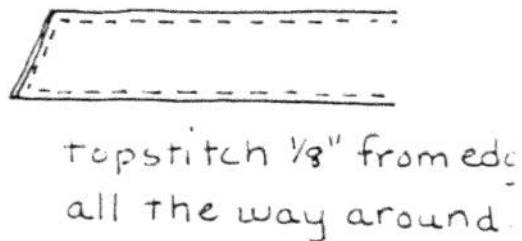 topstitch 1/8" from edg
all the way around.